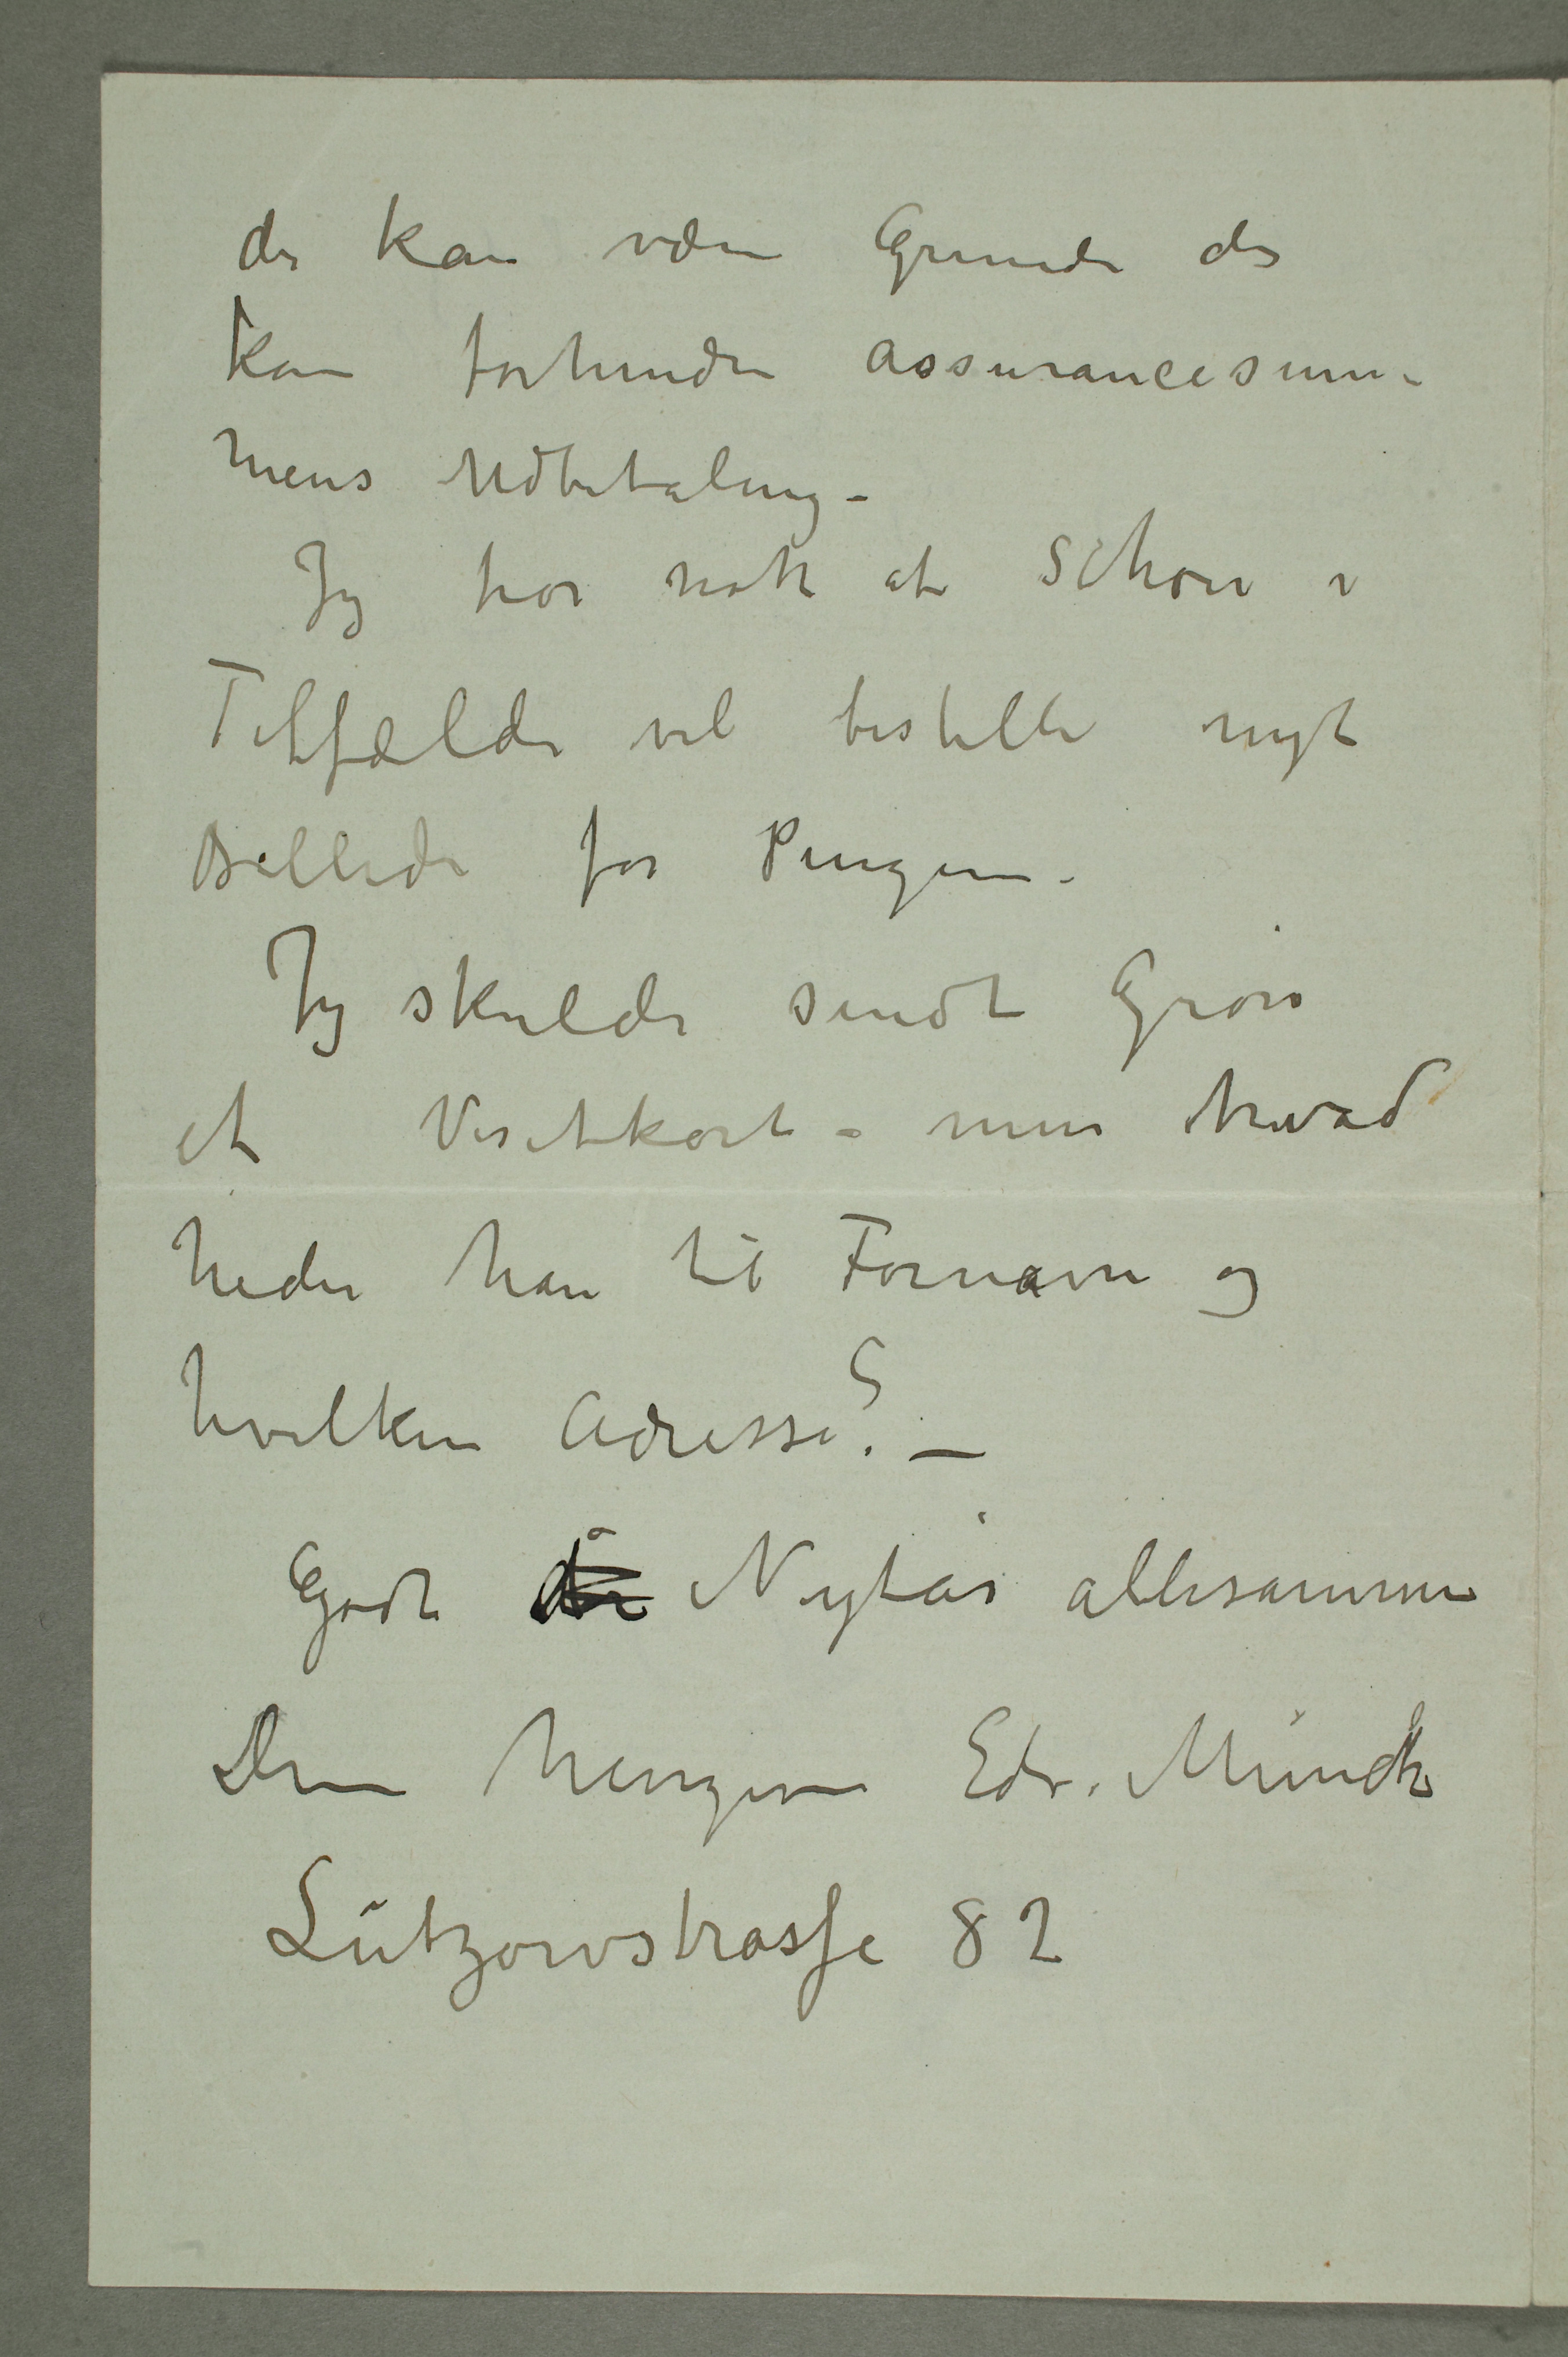 der kan være Grunde der
kan forhindre assurancesum-
mens Udbetaling –
Jeg tror nok at Schou i
Tilfælde vil bestille nyt
Billede for Pengene –
Jeg skulde sendt Grøn
et Visitkort – men hvad
heder han til Fornavn og
hvilken Adresse? –
Godt Nytår allesammen
Din hengivne Edv. Munch
Lützowstrasse 82